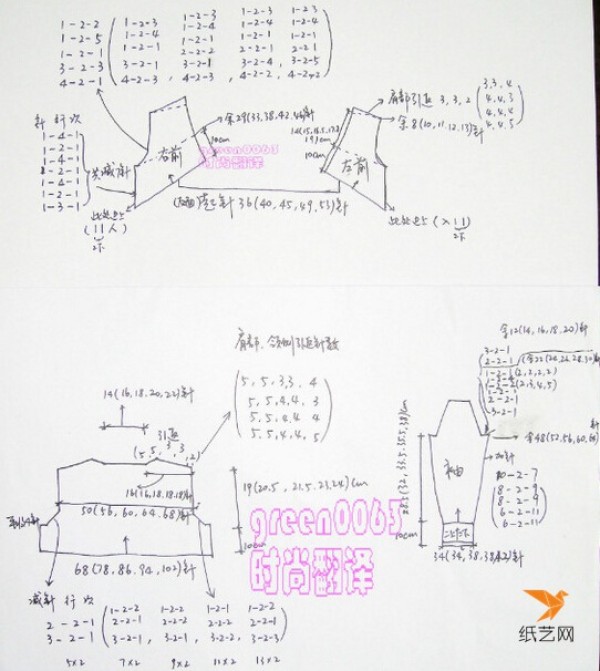 1-2-2
1-2-5
1-2-1
3-2-3
4-2-1
1-2-3 1-2-3 1-2-3 1-2-3
1-2-4 1-2-4 1-2-4 1-2-4
1-2-1 1-2-1 1-2-1 1-2-1
2-2-2 2-2-1 2-2-1
3-2-1 3-2-1 3-2-4, 3-2-5
4-2-3, 4-2-3, 4-2-2, 4-2-2
针 行 次
1-4-1
1-2-1
1-4-1
2-2-1
1-4-1
1-2-1
1-3-1
共减针
余29(33,38,42,46)针
10cm
右前
肩部引返 3, 3, 2
3,3,4
4,4,3
4,4,4
4,4,5
余8(10,11,12,13)针
19cm
10cm
左前
起针 36(40,45,49,53)针
green0063
时尚翻译
肩部、领侧引返针数
5, 5, 3,3, 4
5, 5, 4,4, 3
5, 5, 4,4 4
5, 5, 4,4, 5
14(16,18,20,22)针
引返
16(16,18,18,18)针
50(56,60,64,68)针
19(20.5, 21.5, 23,24)cm
10cm
68(78,86,94,102)针
green0063
时尚翻译
减针 行 次
2-2-1
3-2-1
1-2-2 1-2-2 1-2-1 1-2-2
2-2-1 2-2-2 2-2-2 2-2-1
3-2-1, 3-2-1, 3-2-2, 3-2-3
5×2 7×2 9×2 11×2 13×2
余12(14,16,18,20)针
3-2-1
2-2-1
2-2-1
3-2-1
余48(52,56,60,64)针
袖
28.5(32,33.5,35.5,38)cm
加针
10-2-7
8-2-9
8-2-9
6-2-11
6-2-11
10cm
34(34,38,38,42)针
纸艺网